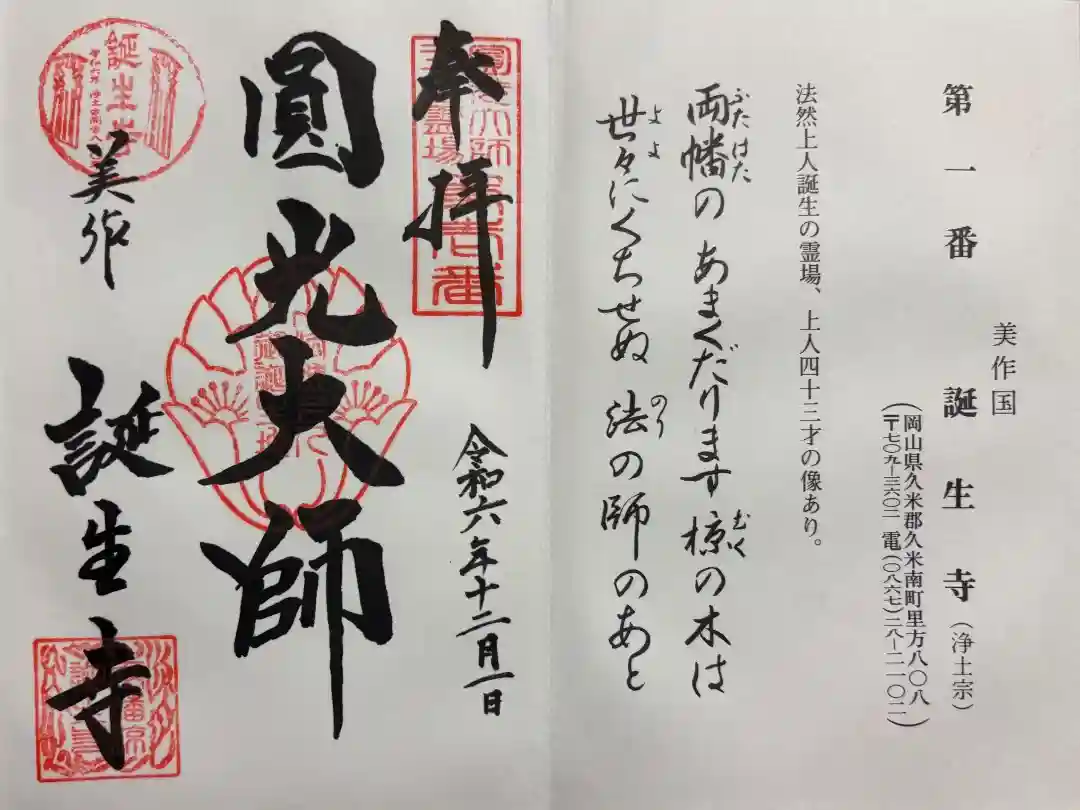 美作国
第一番 誕生寺（浄土宗）
（岡山県久米郡久米南町里方八〇八
（〒七〇九ー三六〇二 電（〇八六七）二八ー二一〇二）
法然上人誕生の霊場、上人四十三才の像あり。
両幡の あまくだります 椋の木は
ふたはた
むく
世々にくちせぬ 法の師のあと
よよ
のり
奉拝
令和六年十二月一日
圓光大師
美作
誕生寺
誕生寺